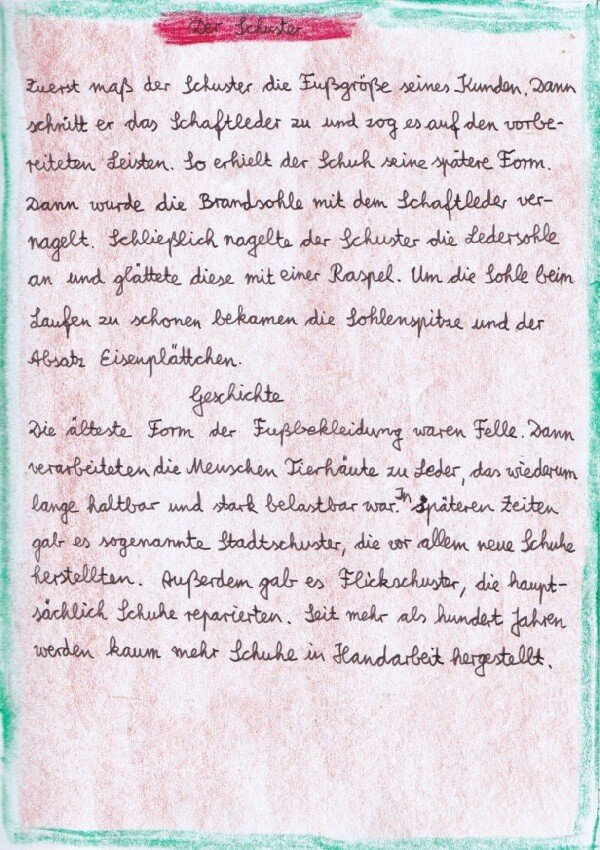 Der Schuster
Zuerst maß der Schuster die Fußgröße seines Kunden. Dann
schnitt er das Schaftleder zu und zog es auf den vorbe-
reiteten Leisten. So erhielt der Schuh seine spätere Form.
Dann wurde die Brandsohle mit dem Schaftleder ver-
nagelt. Schließlich nagelte der Schuster die Ledersohle
an und glättete diese mit einer Raspel. Um die Sohle beim
Laufen zu schonen bekamen die Sohlenspitze und der
Absatz Eisenplättchen.
Geschichte
Die älteste Form der Fußbekleidung waren Felle. Dann
verarbeiteten die Menschen Tierhäute zu Leder, das wiederum
lange haltbar und stark belastbar war. In späteren Zeiten
gab es sogenannte Stadtschuster, die vor allem neue Schuhe
herstellten. Außerdem gab es Flickschuster, die haupt-
sächlich Schuhe reparierten. Seit mehr als hundert Jahren
werden kaum mehr Schuhe in Handarbeit hergestellt.